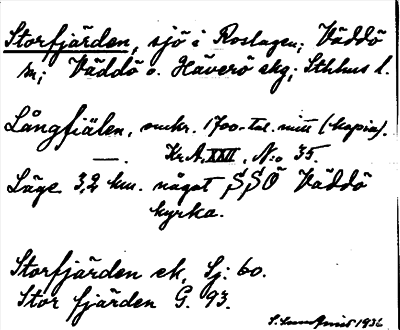 Storfjärden, sjö i Roslagen; Väddö
sn; Väddö o. Häverö skg; Sthlms l.
Långfiälen, omkr. 1700-tal. mitt (kopia).
—. Kr. A, XXII, N:o 35.
Läge 3,2 km. något SSÖ Väddö
kyrka.
Storfjärden ek, Sj: 60.
Stor fjärden G. 93.
1936